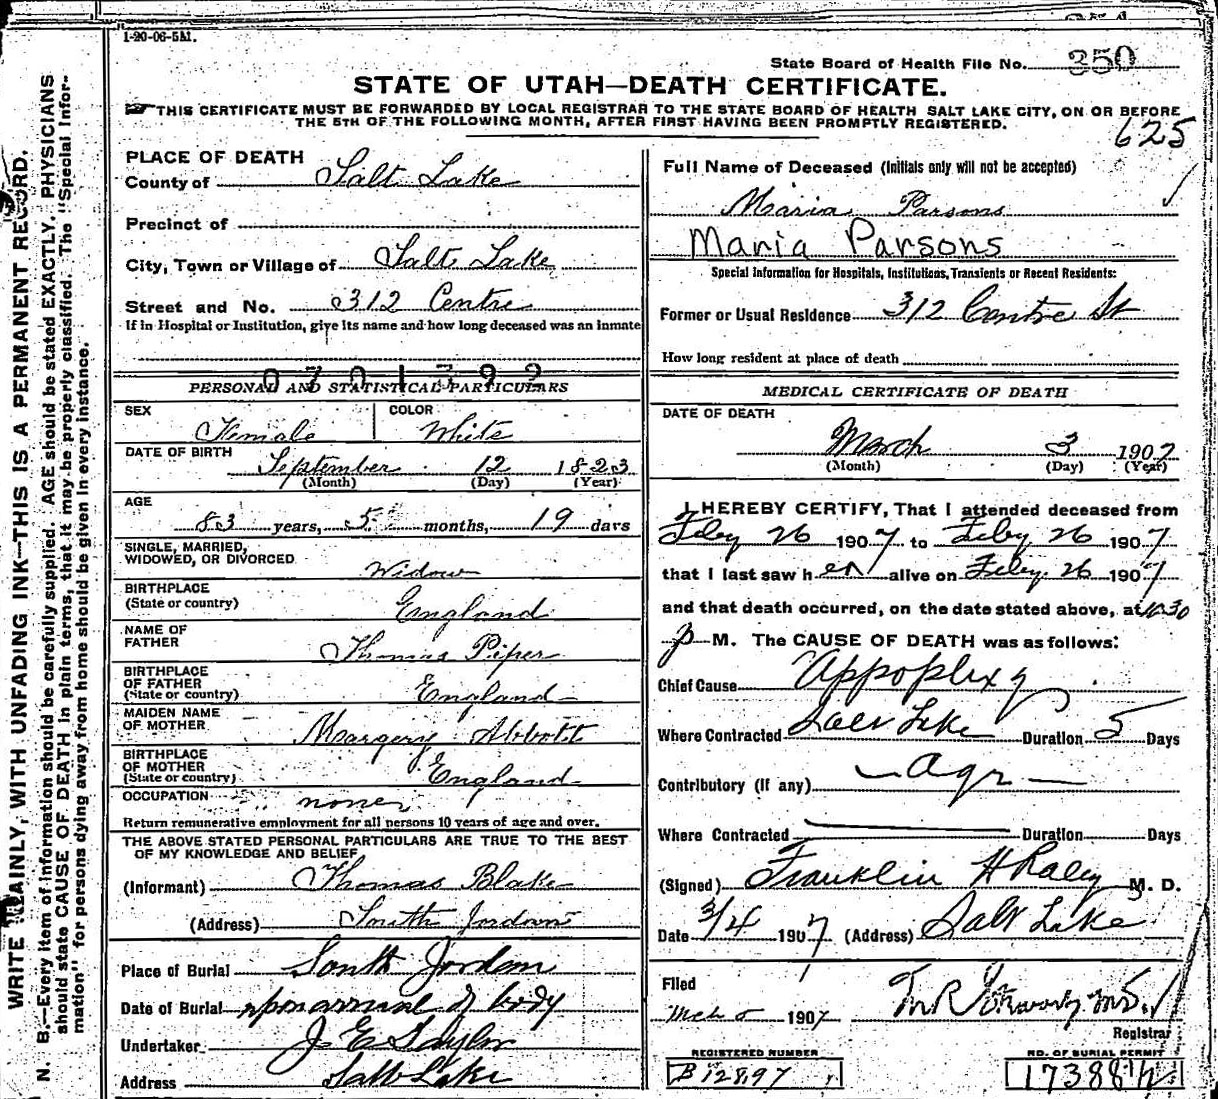 1-20-06-5M.
State Board of Health File No. 350
STATE OF UTAH—DEATH CERTIFICATE.
THIS CERTIFICATE MUST BE FORWARDED BY LOCAL REGISTRAR TO THE STATE BOARD OF HEALTH SALT LAKE CITY, ON OR BEFORE
THE 5TH OF THE FOLLOWING MONTH, AFTER FIRST HAVING BEEN PROMPTLY REGISTERED.
625
WRITE PLAINLY, WITH UNFADING INK—THIS IS A PERMANENT RECORD.
N. B.—Every item of information should be carefully supplied. AGE should be stated EXACTLY. PHYSICIANS
should state CAUSE OF DEATH in plain terms, that it may be properly classified. The "Special Infor-
mation" for persons dying away from home should be given in every instance.
PLACE OF DEATH
County of Salt Lake
Precinct of
City, Town or Village of Salt Lake
Street and No. 312 Centre
If in Hospital or Institution, give its name and how long deceased was an inmate
0701392
PERSONAL AND STATISTICAL PARTICULARS
SEX Female COLOR White
DATE OF BIRTH September 12 1823
(Month) (Day) (Year)
AGE
83 years, 5 months, 19 days
SINGLE, MARRIED,
WIDOWED, OR DIVORCED Widow
BIRTHPLACE
(State or country) England
NAME OF
FATHER Thomas Piper
BIRTHPLACE
OF FATHER
(State or country) England
MAIDEN NAME
OF MOTHER Margery Abbott
BIRTHPLACE
OF MOTHER
(State or country) England
OCCUPATION none
Return remunerative employment for all persons 10 years of age and over.
THE ABOVE STATED PERSONAL PARTICULARS ARE TRUE TO THE BEST
OF MY KNOWLEDGE AND BELIEF
(Informant) Thomas Blake
(Address) South Jordan
Place of Burial South Jordan
Date of Burial upon arrival of body
Undertaker J E Taylor
Address Salt Lake
Full Name of Deceased (Initials only will not be accepted)
Maria Parsons
Maria Parsons
Special Information for Hospitals, Institutions, Transients or Recent Residents:
Former or Usual Residence 312 Centre St
How long resident at place of death
MEDICAL CERTIFICATE OF DEATH
DATE OF DEATH
March 3 1907
(Month) (Day) (Year)
I HEREBY CERTIFY, That I attended deceased from
Feby 26 1907 to Feby 26 1907
that I last saw her alive on Feby. 26 1907
and that death occurred, on the date stated above, at 10.30
p M. The CAUSE OF DEATH was as follows:
Chief Cause Appoplexy
Where Contracted Salt Lake Duration 5 Days
Contributory (if any) Age
Where Contracted Duration Days
(Signed) Franklin H Raley M. D.
Date 3/4 1907 (Address) Salt Lake
Filed
1907
Registrar
REGISTERED NUMBER
B 12897
NO. OF BURIAL PERMIT